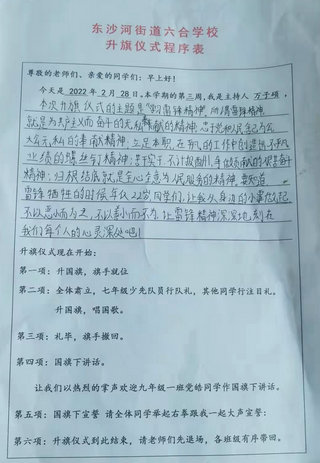 东沙河街道六合学校
升旗仪式程序表
尊敬的老师们、亲爱的同学们：早上好！
今天是 2022 年 2 月 28 日。本学期的第三周，我是主持人 万子硕，
本次升旗仪式的主题是“学习雷锋精神”，所谓雷锋精神
就是为共产主义而奋斗的无私奉献的精神；忠于党和人民、舍己为公、
大公无私的奉献精神；立足本职、在平凡的工作中创造出不平凡
业绩的螺丝钉精神；苦干实干、不计报酬、争做贡献的艰苦奋斗
精神；归根结底就是全心全意为人民服务的精神。要知道
雷锋牺牲的时候年仅22岁，同学们，让我从身边的小事做起，
不以恶小而为之，不以善小而不为，让雷锋精神深深地刻在
我们每个人的心灵深处吧！
升旗仪式现在开始：
第一项：升国旗，旗手就位
第二项：全体肃立，七年级少先队员行队礼，其他同学行注目礼。
升国旗，唱国歌。
第三项：礼毕，旗手撤回。
第四项：国旗下讲话。
让我们以热烈的掌声欢迎九年级一班党皓同学作国旗下讲话。
第五项：国旗下宣誓 请全体同学举起右拳跟我一起大声宣誓：
第六项：升旗仪式到此结束，请老师们先退场，各班级有序带回。